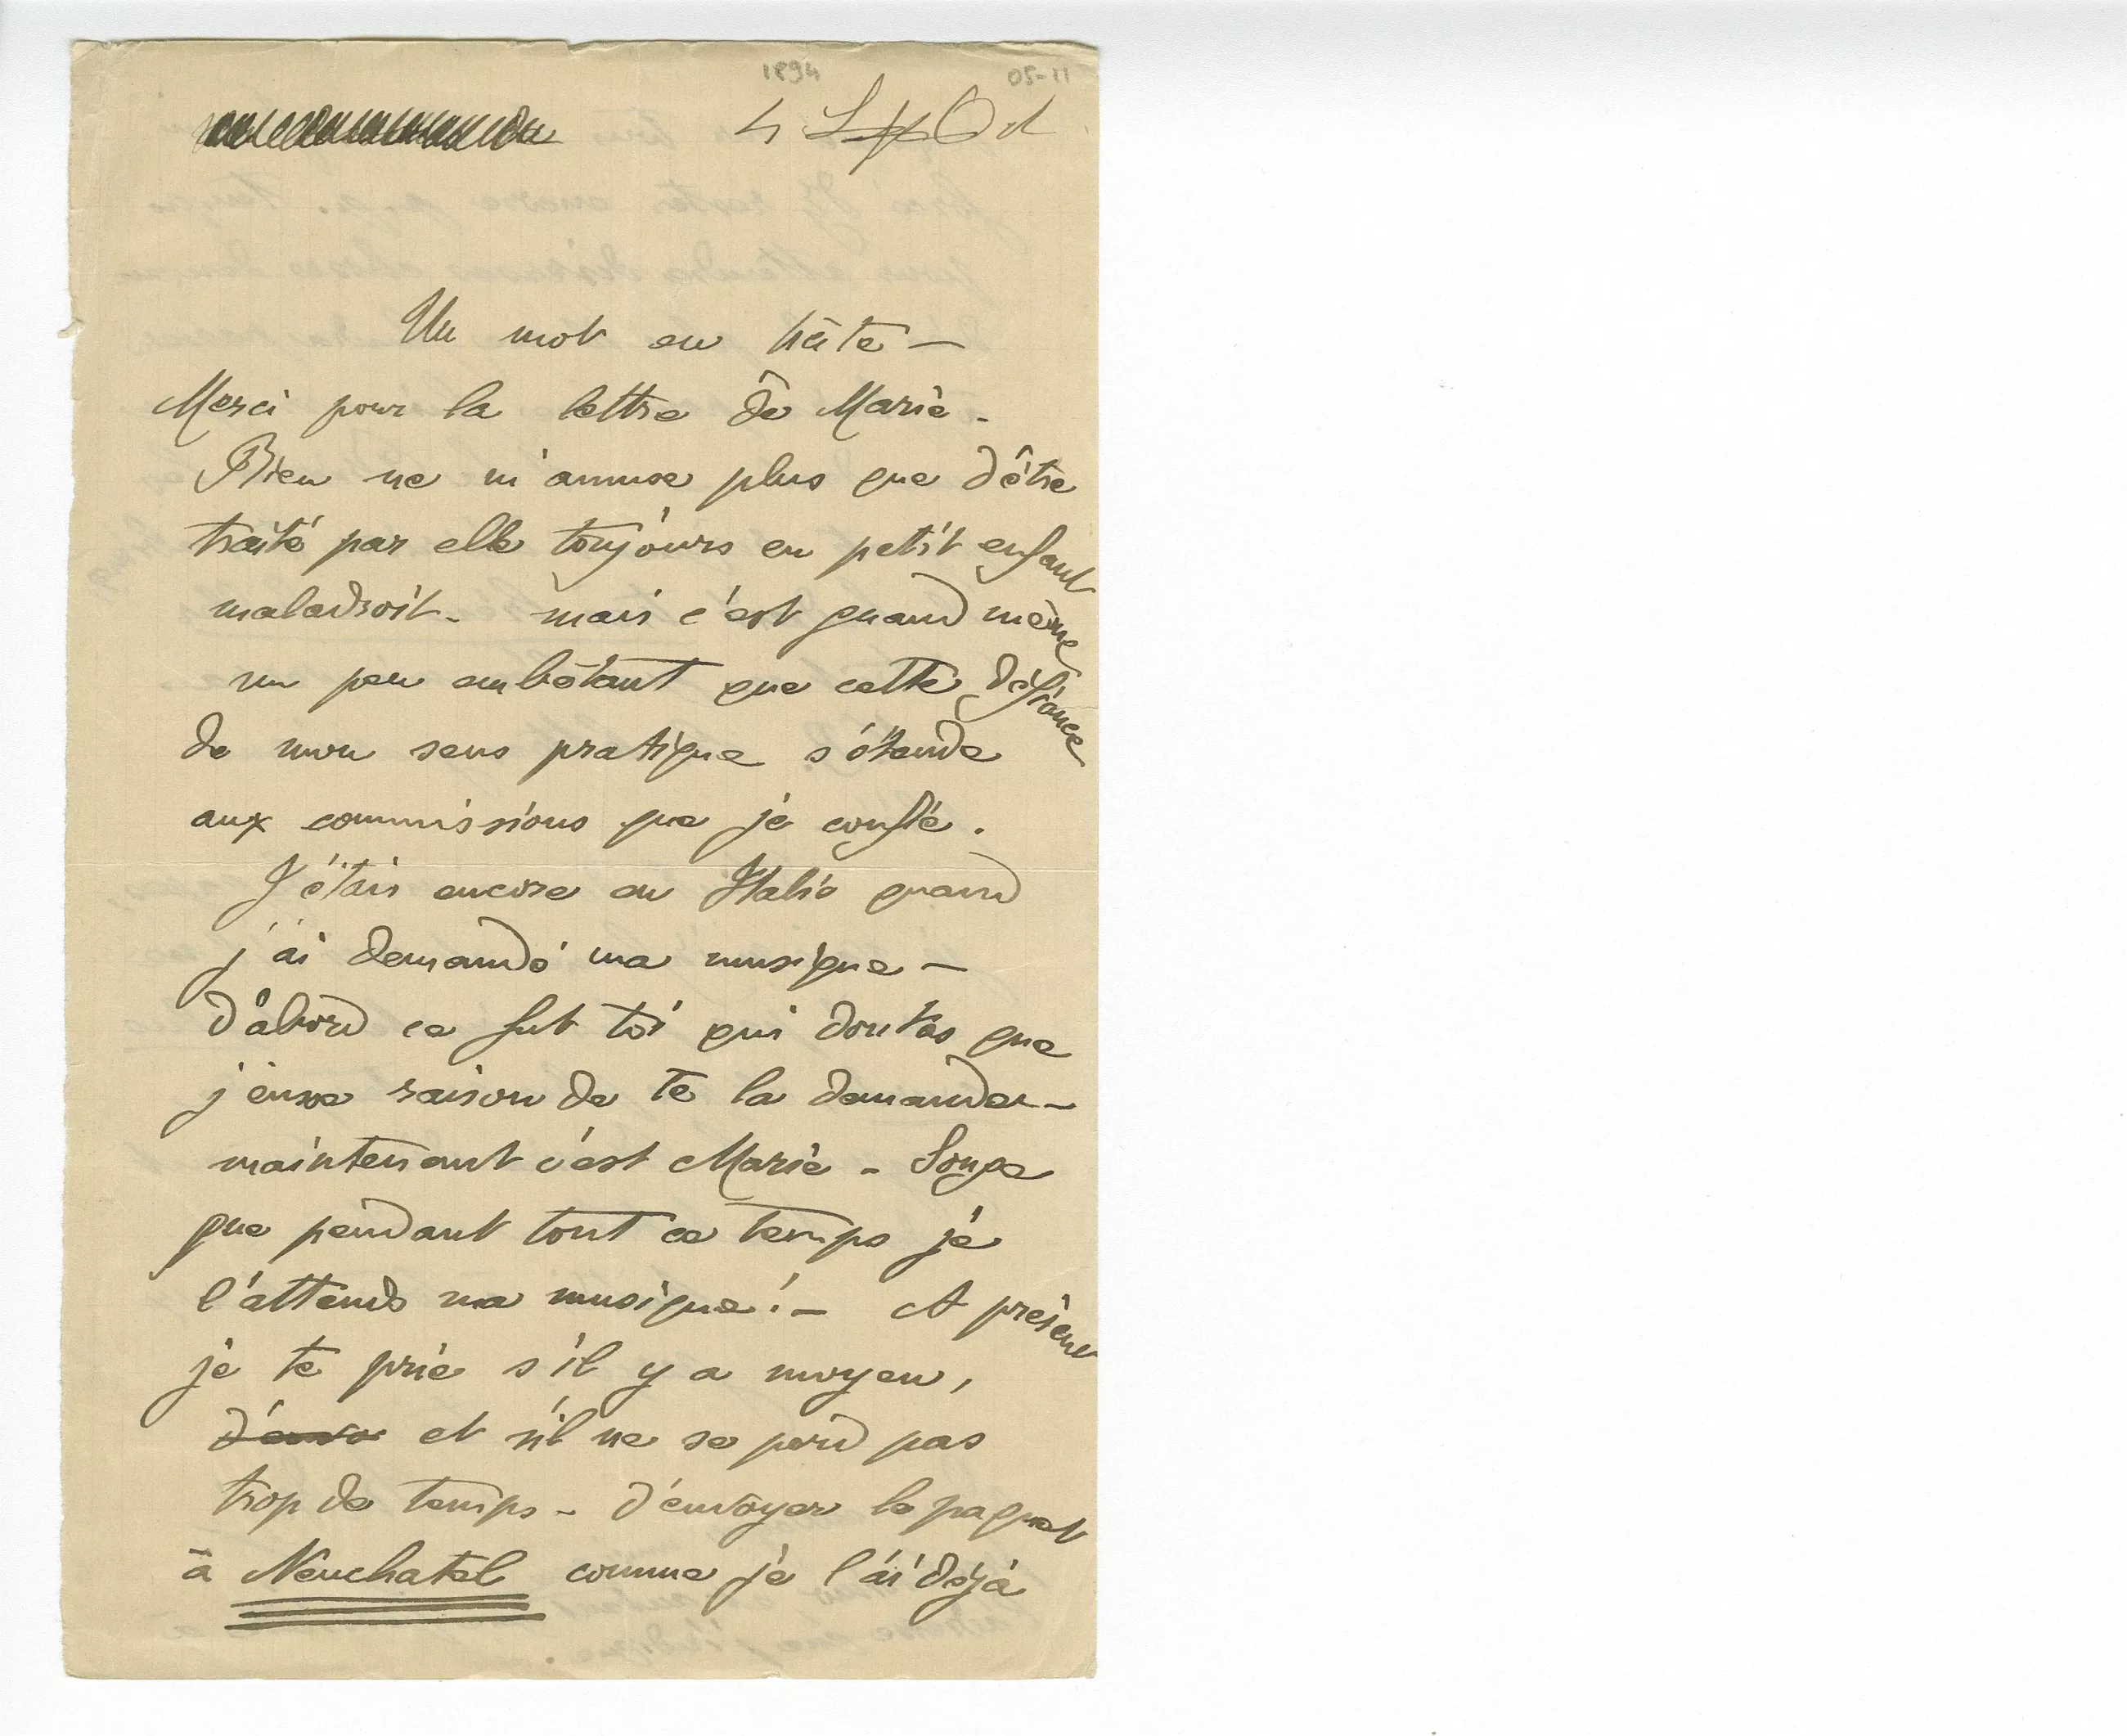 1894 05-11
4 Sept Oct
Un mot en hâte —
Merci pour la lettre de Marie -
Rien ne m'amuse plus que d'être
traité par elle toujours en petit enfant
maladroit - mais c'est quand même
un peu embêtant que cette défiance
de mon sens pratique s'étende
aux commissions que je confie.
J'étais encore en Italie quand
j'ai demandé ma musique —
d'abord ce fut toi qui doutas que
j'eusse raison de te la demander —
maintenant c'est Marie - Songe
que pendant tout ce temps je
l'attends ma musique! — A présent
je te prie s'il y a moyen,
et s'il ne se perd pas
trop de temps - d'envoyer le paquet
à Neuchatel comme je l'ai déjà